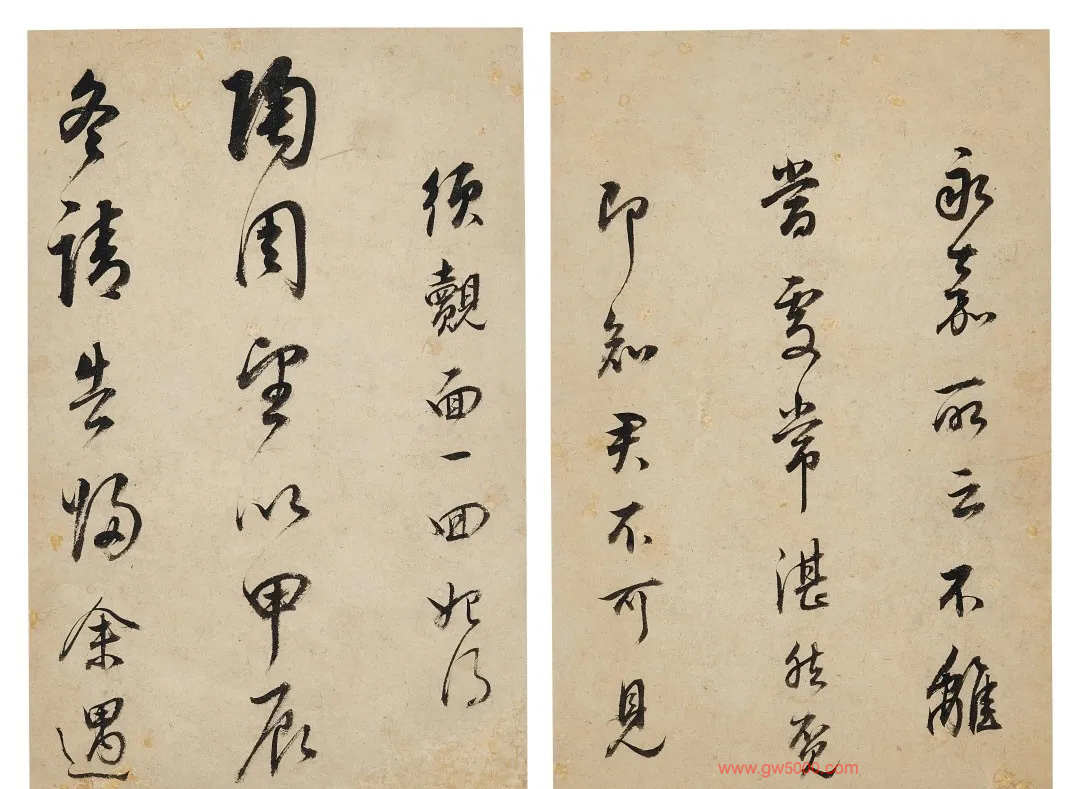 永嘉所云不離
當處常湛然覓
即知君不可見
須覿面一回始得
陶周望以甲辰
冬請告歸余遇
www.gw5000.com